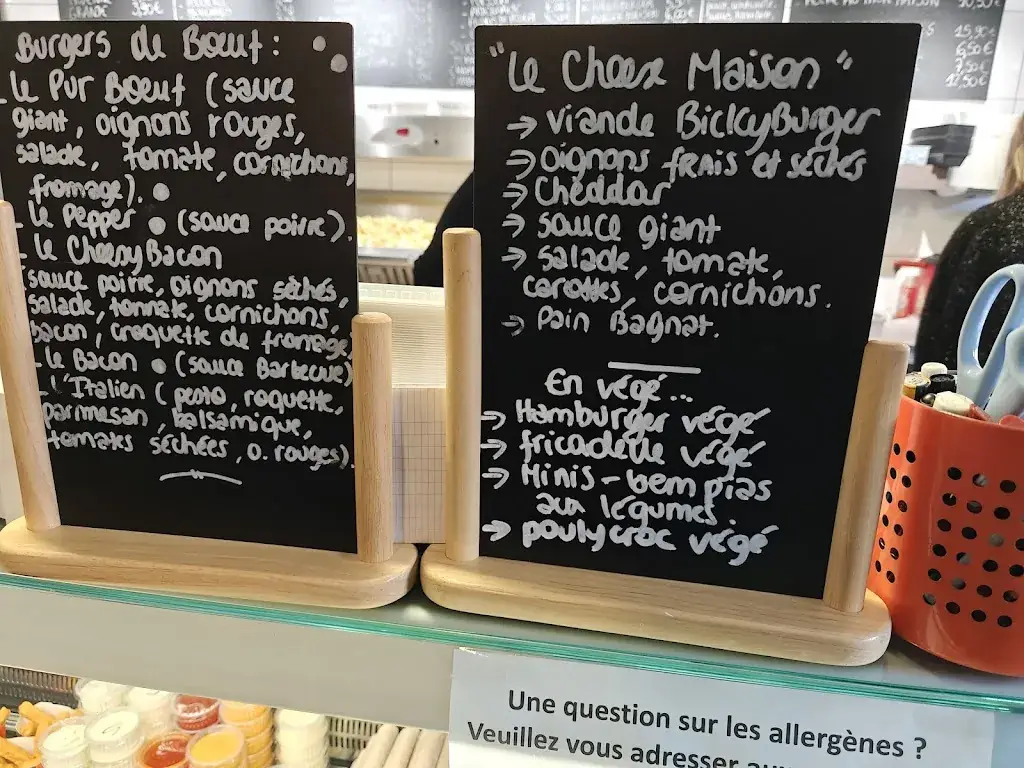 Burgers de Boeuf :
- Le Pur Boeuf (sauce
giant, oignons rouges,
salade, tomate, cornichons,
fromage).
- Le Pepper (sauce poivre).
- Le CheesyBacon
(sauce poivre, oignons séchés,
salade, tomate, cornichons,
bacon, croquette de fromage)
- Le Bacon (sauce Barbecue)
- L'Italien (pesto, roquette,
parmesan, balsamique,
tomates séchées, o. rouges).
"Le Cheese Maison"
→ viande BickyBurger
→ oignons frais et séchés
→ Cheddar
→ sauce giant
→ salade, tomate,
carottes, cornichons.
→ Pain Bagnat.
En végé...
→ Hamburger végé
→ fricadelle végé
→ Minis-bem pias
aux légumes.
→ poulycroc végé
Une question sur les allergènes ?
Veuillez vous adresser